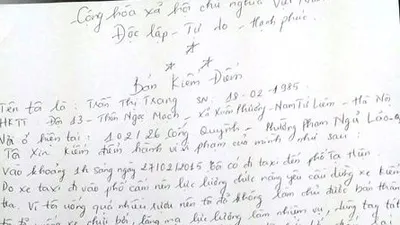 Cộng hòa xã hội chủ nghĩa Việt
Độc lập - Tự do - Hạnh phúc.
Bản Kiểm Điểm
Tên tôi là : Trần Thị Trang SN: 18-02-1985.
HKTT - Đội 13 - Thôn Ngọc Mạch - Xã Xuân Phương - Nam Từ Liêm - Hà Nội
Nơi ở hiện tại : 102/26 Cống Quỳnh - Phường Phạm Ngũ Lão - Q
Tôi xin kiểm điểm hành vi vi phạm của mình như sau :
Vào khoảng 1h sáng ngày 27/02/2015 tôi có đi taxi đến phố Tạ Hiện.
Do xe taxi đi vào phố cấm nên lực lượng chức năng yêu cầu dừng xe kiểm
tra. Vì tôi uống quá nhiều rượu nên tôi đã không làm chủ được bản thân
xe chửi bới, lăng mạ lực lượng làm nhiệm vụ, dùng tay tát